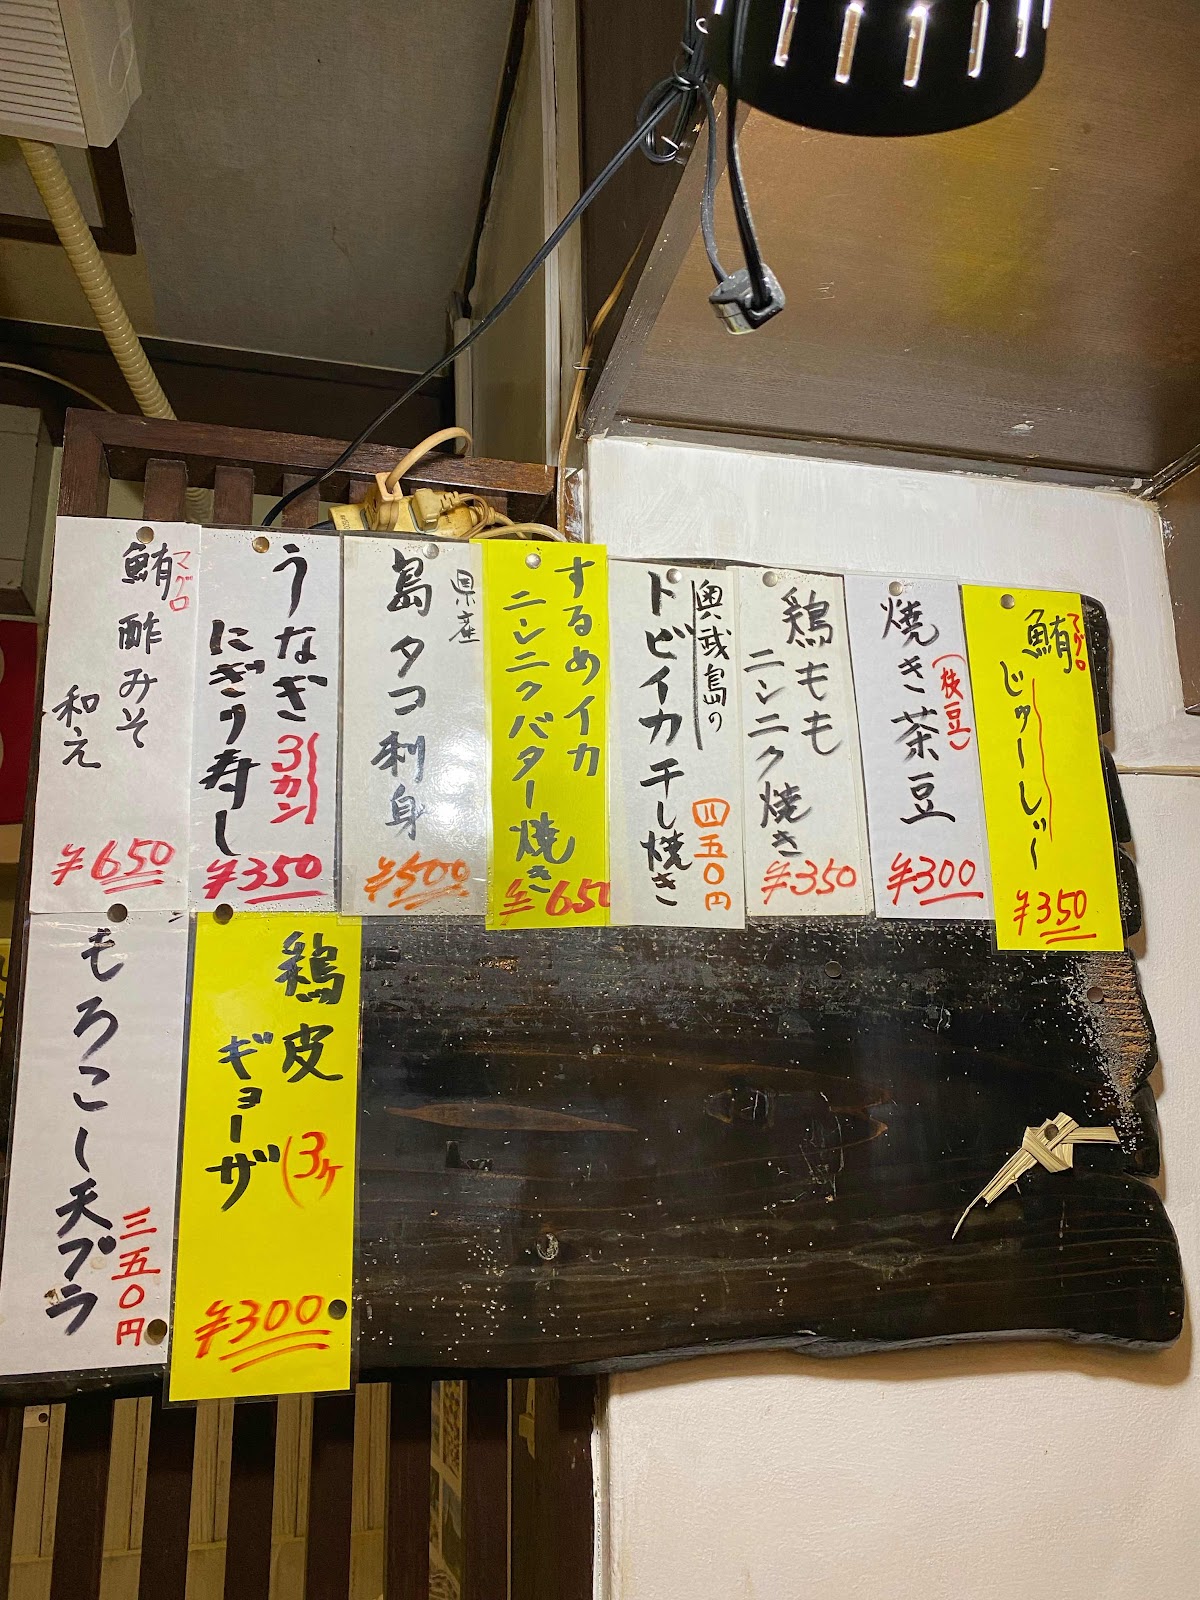 鮪
マグロ
じゅーしぃー
¥350
焼き茶豆
(枝豆)
¥300
鶏もも
ニンニク焼き
¥350
奥武島の
トビイカ干し焼き
四五〇円
するめイカ
ニンニクバター焼き
¥650
県産
島タコ刺身
¥500
うなぎ3カン
にぎり寿し
¥350
マグロ
鮪酢みそ
和え
¥650
鶏皮
ギョーザ
(3ヶ
¥300
もろこし天プラ
三五〇円